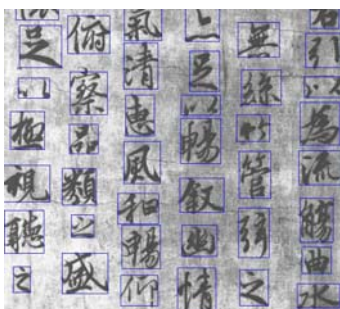 右引以為流觴曲水
無絲竹管弦之
足以暢叙幽情
氣清惠風和暢仰
俯察品類之盛
足以極視聽之